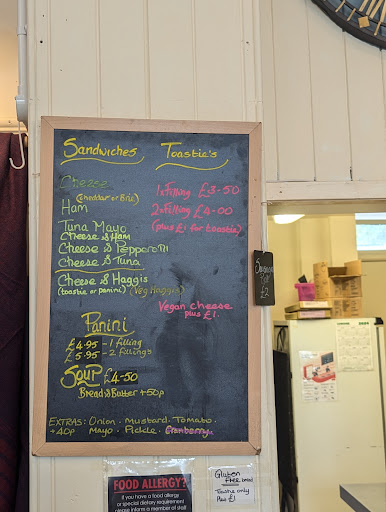 Sandwiches Toastie's
Cheese
(cheddar or Brie)
Ham
Tuna Mayo
Cheese & Ham
Cheese & Pepperoni
Cheese & Tuna
Cheese & Haggis
(toastie or panini) (Veg Haggis)
1x Filling £3-50
2x Filling £4-00
(plus £1 for toastie)
Vegan cheese
plus £1.
Panini
£4.95 - 1 filling
£5.95 - 2 fillings
Soup £4-50
Bread & Butter +50p
EXTRAS: Onion. Mustard. Tomato.
+40p Mayo. Pickle. Cranberry.
FOOD ALLERGY?
If you have a food allergy
or special dietary requirement
please inform a member of staff
Gluten
Free bread
Toastie only
Plus £1